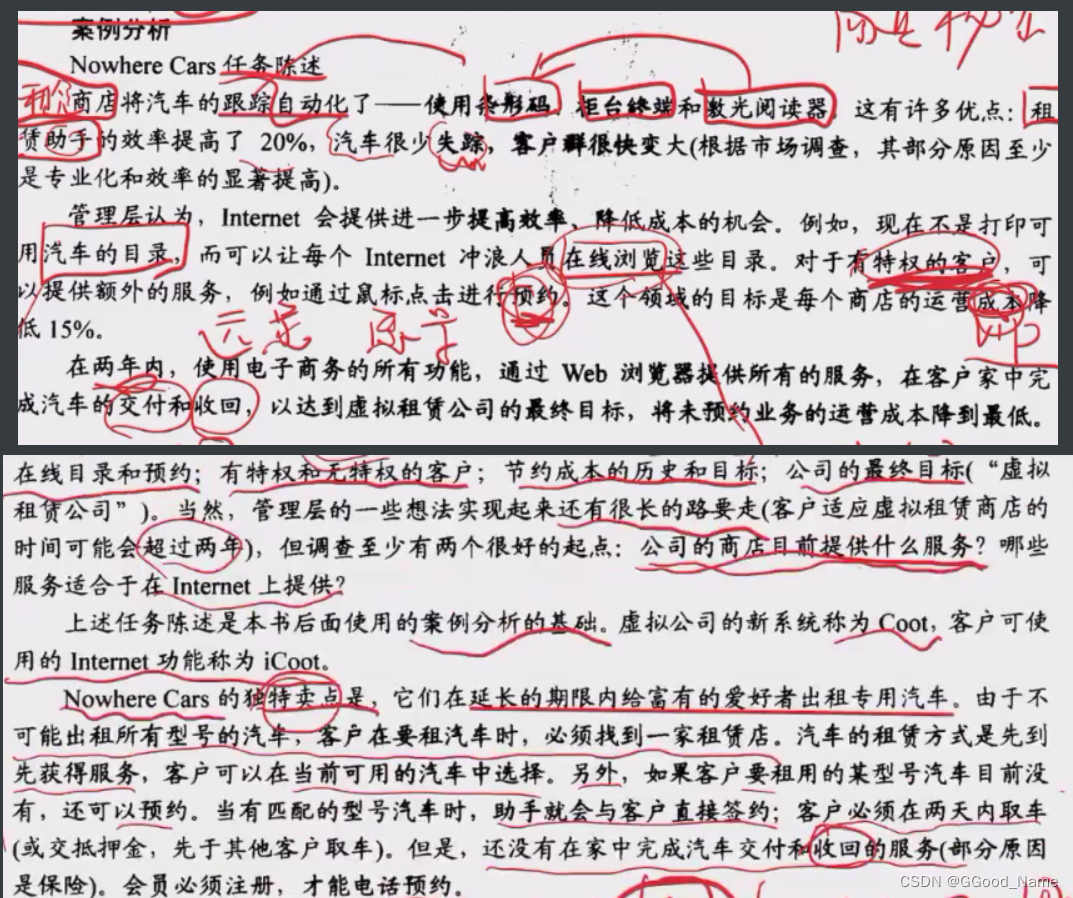 案例分析
Nowhere Cars 任务陈述
商店将汽车的跟踪自动化了——使用条形码、柜台终端和激光阅读器。这有许多优点：租
赁助手的效率提高了 20%，汽车很少失踪，客户群很快变大(根据市场调查，其部分原因至少
是专业化和效率的显著提高)。
管理层认为，Internet 会提供进一步提高效率、降低成本的机会。例如，现在不是打印可
用汽车的目录，而可以让每个 Internet 冲浪人员在线浏览这些目录。对于有特权的客户，可
以提供额外的服务，例如通过鼠标点击进行预约。这个领域的目标是每个商店的运营成本降
低 15%。
在两年内，使用电子商务的所有功能，通过 Web 浏览器提供所有的服务，在客户家中完
成汽车的交付和收回，以达到虚拟租赁公司的最终目标，将未预约业务的运营成本降到最低。
在线目录和预约；有特权和无特权的客户；节约成本的历史和目标；公司的最终目标(“虚拟
租赁公司”)。当然，管理层的一些想法实现起来还有很长的路要走(客户适应虚拟租赁商店的
时间可能会超过两年)，但调查至少有两个很好的起点：公司的商店目前提供什么服务？哪些
服务适合于在 Internet 上提供？
上述任务陈述是本书后面使用的案例分析的基础。虚拟公司的新系统称为 Coot，客户可使
用的 Internet 功能称为 iCoot。
Nowhere Cars 的独特卖点是，它们在延长的期限内给富有的爱好者出租专用汽车。由于不
可能出租所有型号的汽车，客户在要租汽车时，必须找到一家租赁店。汽车的租赁方式是先到
先获得服务，客户可以在当前可用的汽车中选择。另外，如果客户要租用的某型号汽车目前没
有，还可以预约。当有匹配的型号汽车时，助手就会与客户直接签约；客户必须在两天内取车
(或交抵押金，先于其他客户取车)。但是，还没有在家中完成汽车交付和收回的服务(部分原因
是保险)。会员必须注册，才能电话预约。
CSDN @GGood_Name